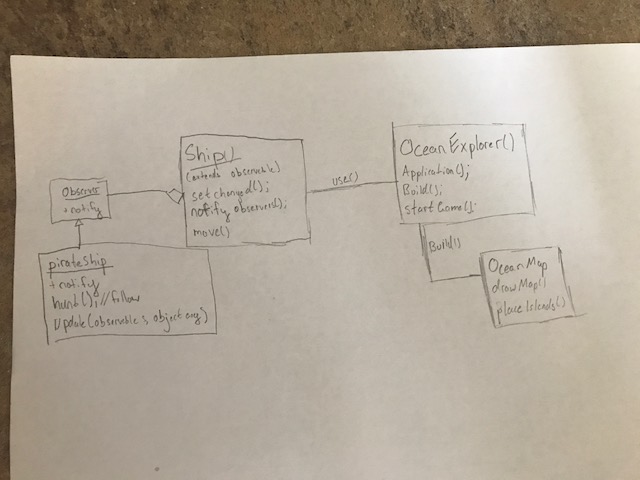 Observer
+ notify
pirateShip
+ notify
hunt(); // follow
Update(observable s, object ong)
Ship()
(extends observable)
setchanged();
notify observers();
move()
use()
OceanExplorer()
Application();
Build();
startGame();
Build()
OceanMap
drawMap()
placeIslands()